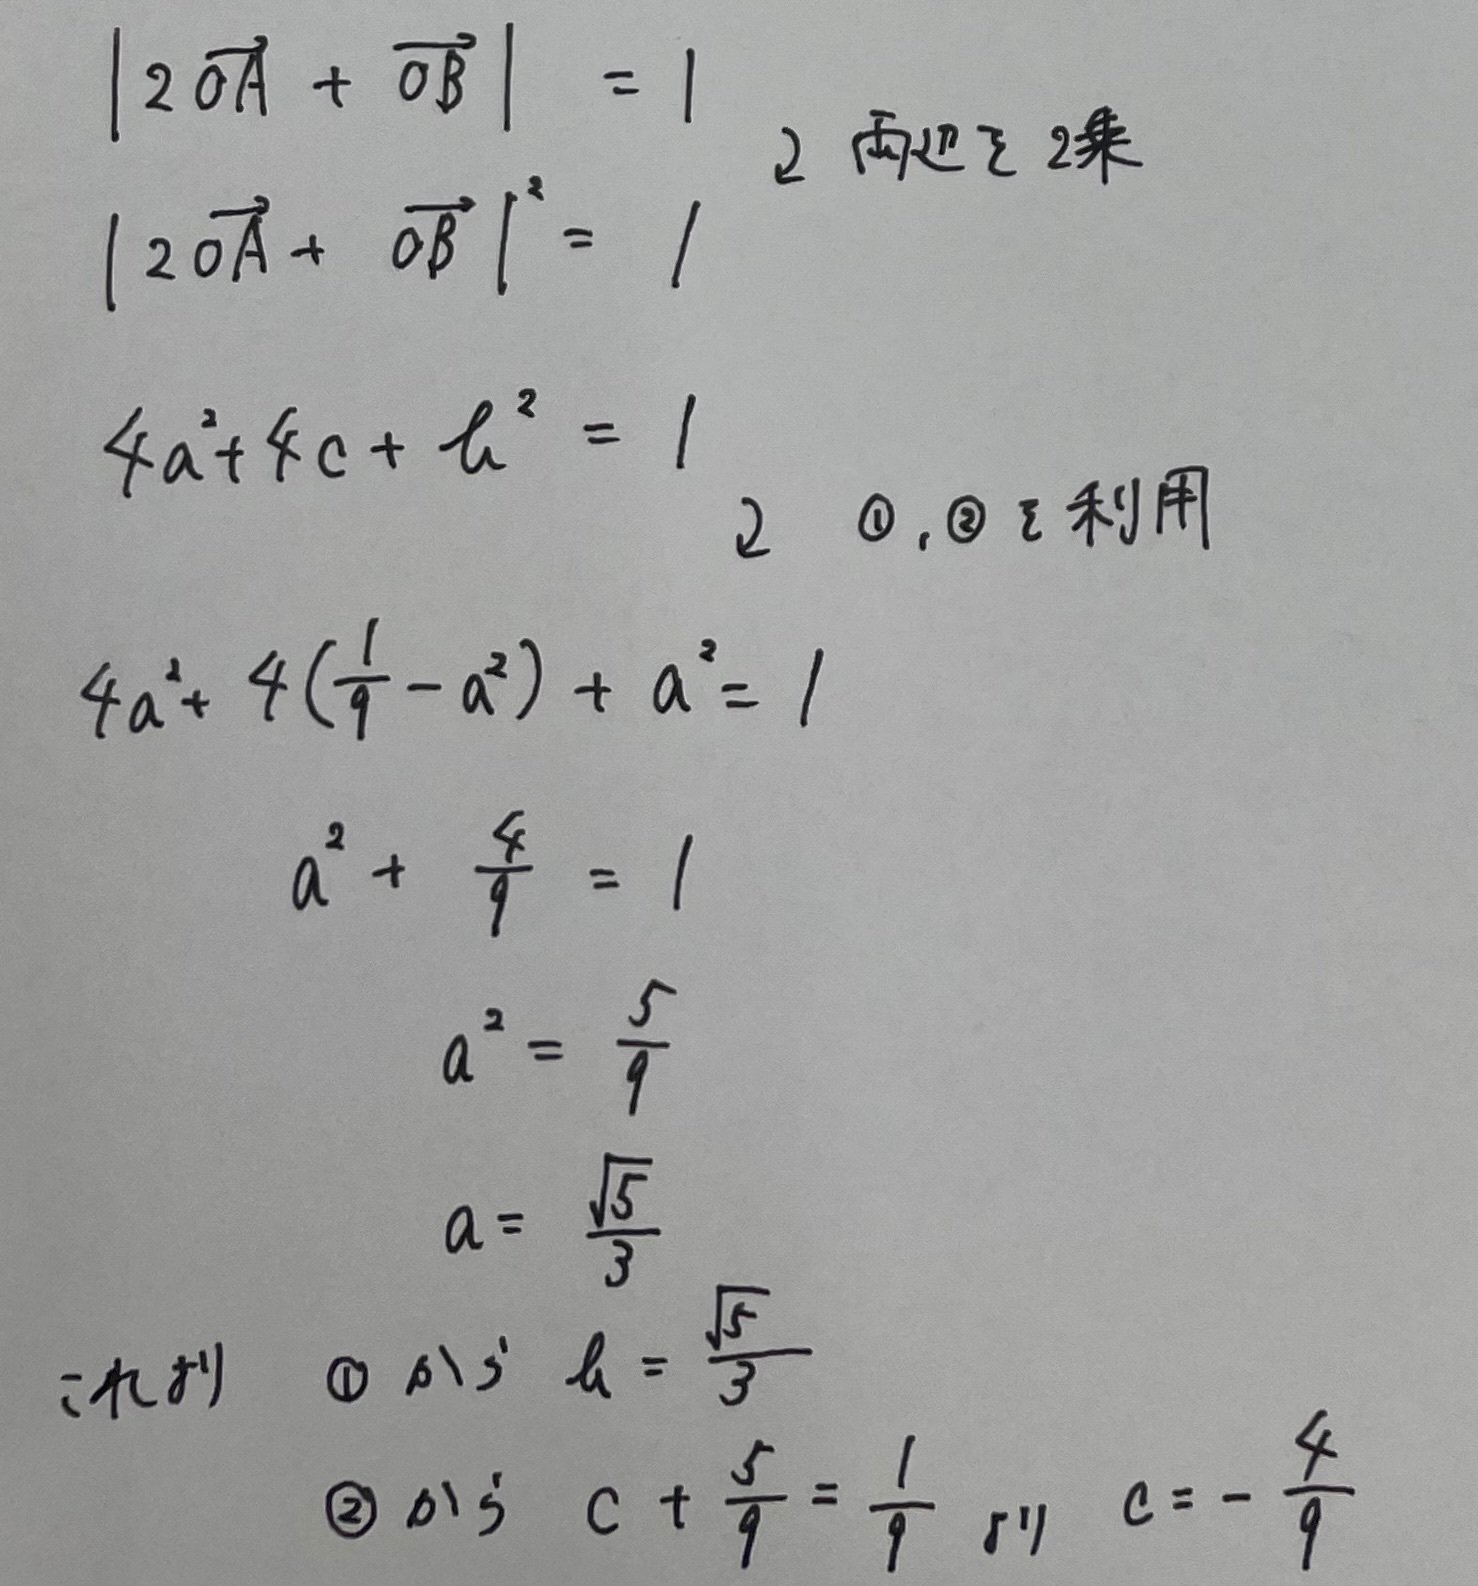 |2OA→ + OB→| = 1
↓ 両辺を2乗
|2OA→ + OB→|² = 1
4a² + 4c + b² = 1
↓ ①, ②を利用
4a² + 4(1/9 - a²) + a² = 1
a² + 4/9 = 1
a² = 5/9
a = √5/3
これより ①から b = √5/3
②から c + 5/9 = 1/9 より c = -4/9